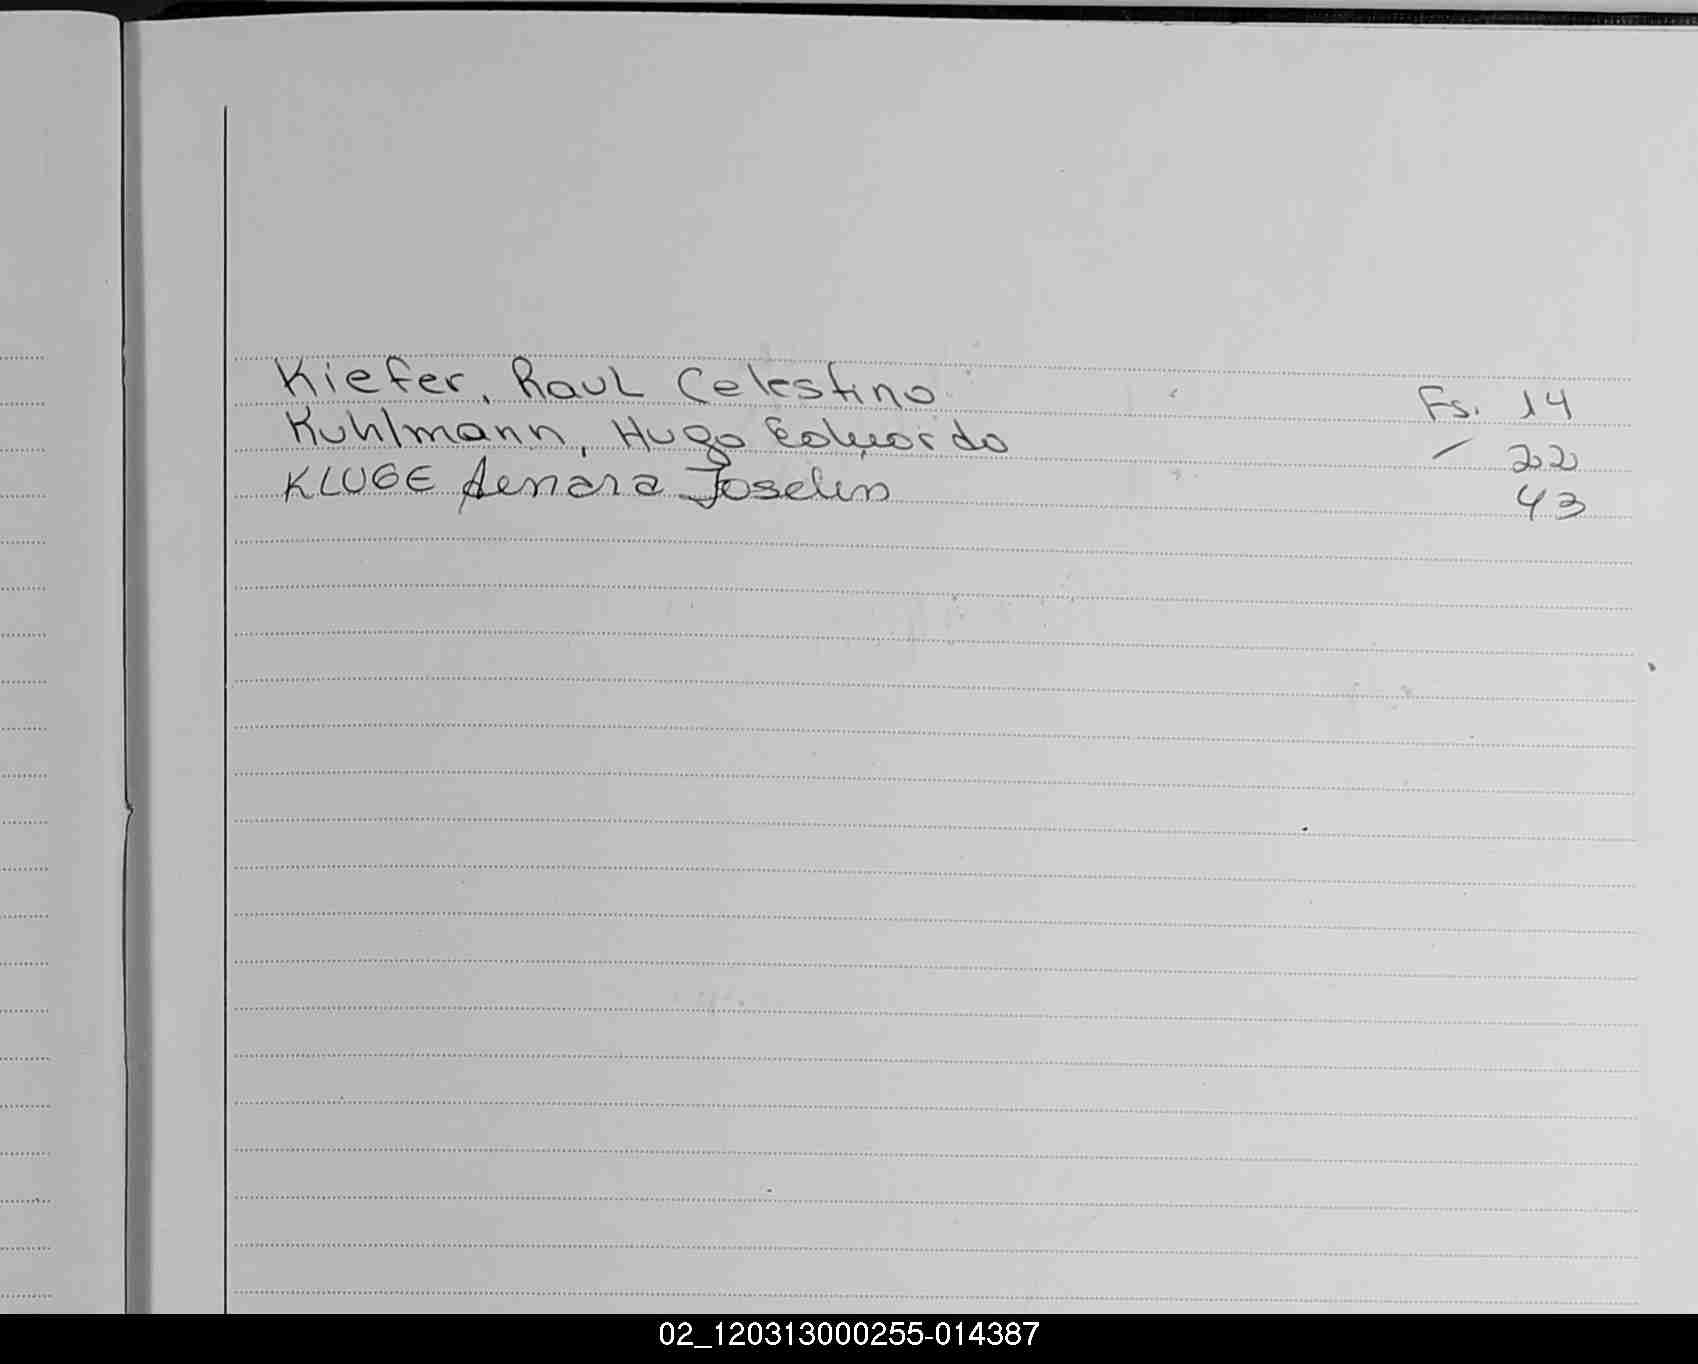 Kiefer, Raul Celestino Fs. 14
Kuhlmann, Hugo Eduardo - 22
KLUGE Joselin 43
02_120313000255-014387